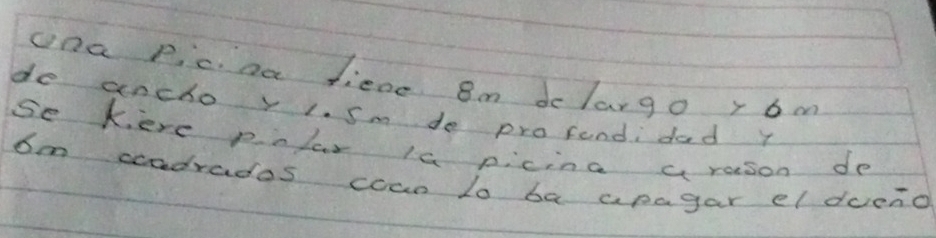 una picina tiene 8m de largo y 6m
de ancho y 1.5m de profundidad y
se kiere pintar la picina a rason de
6m cuadrados cuan lo ba apagar el dueño